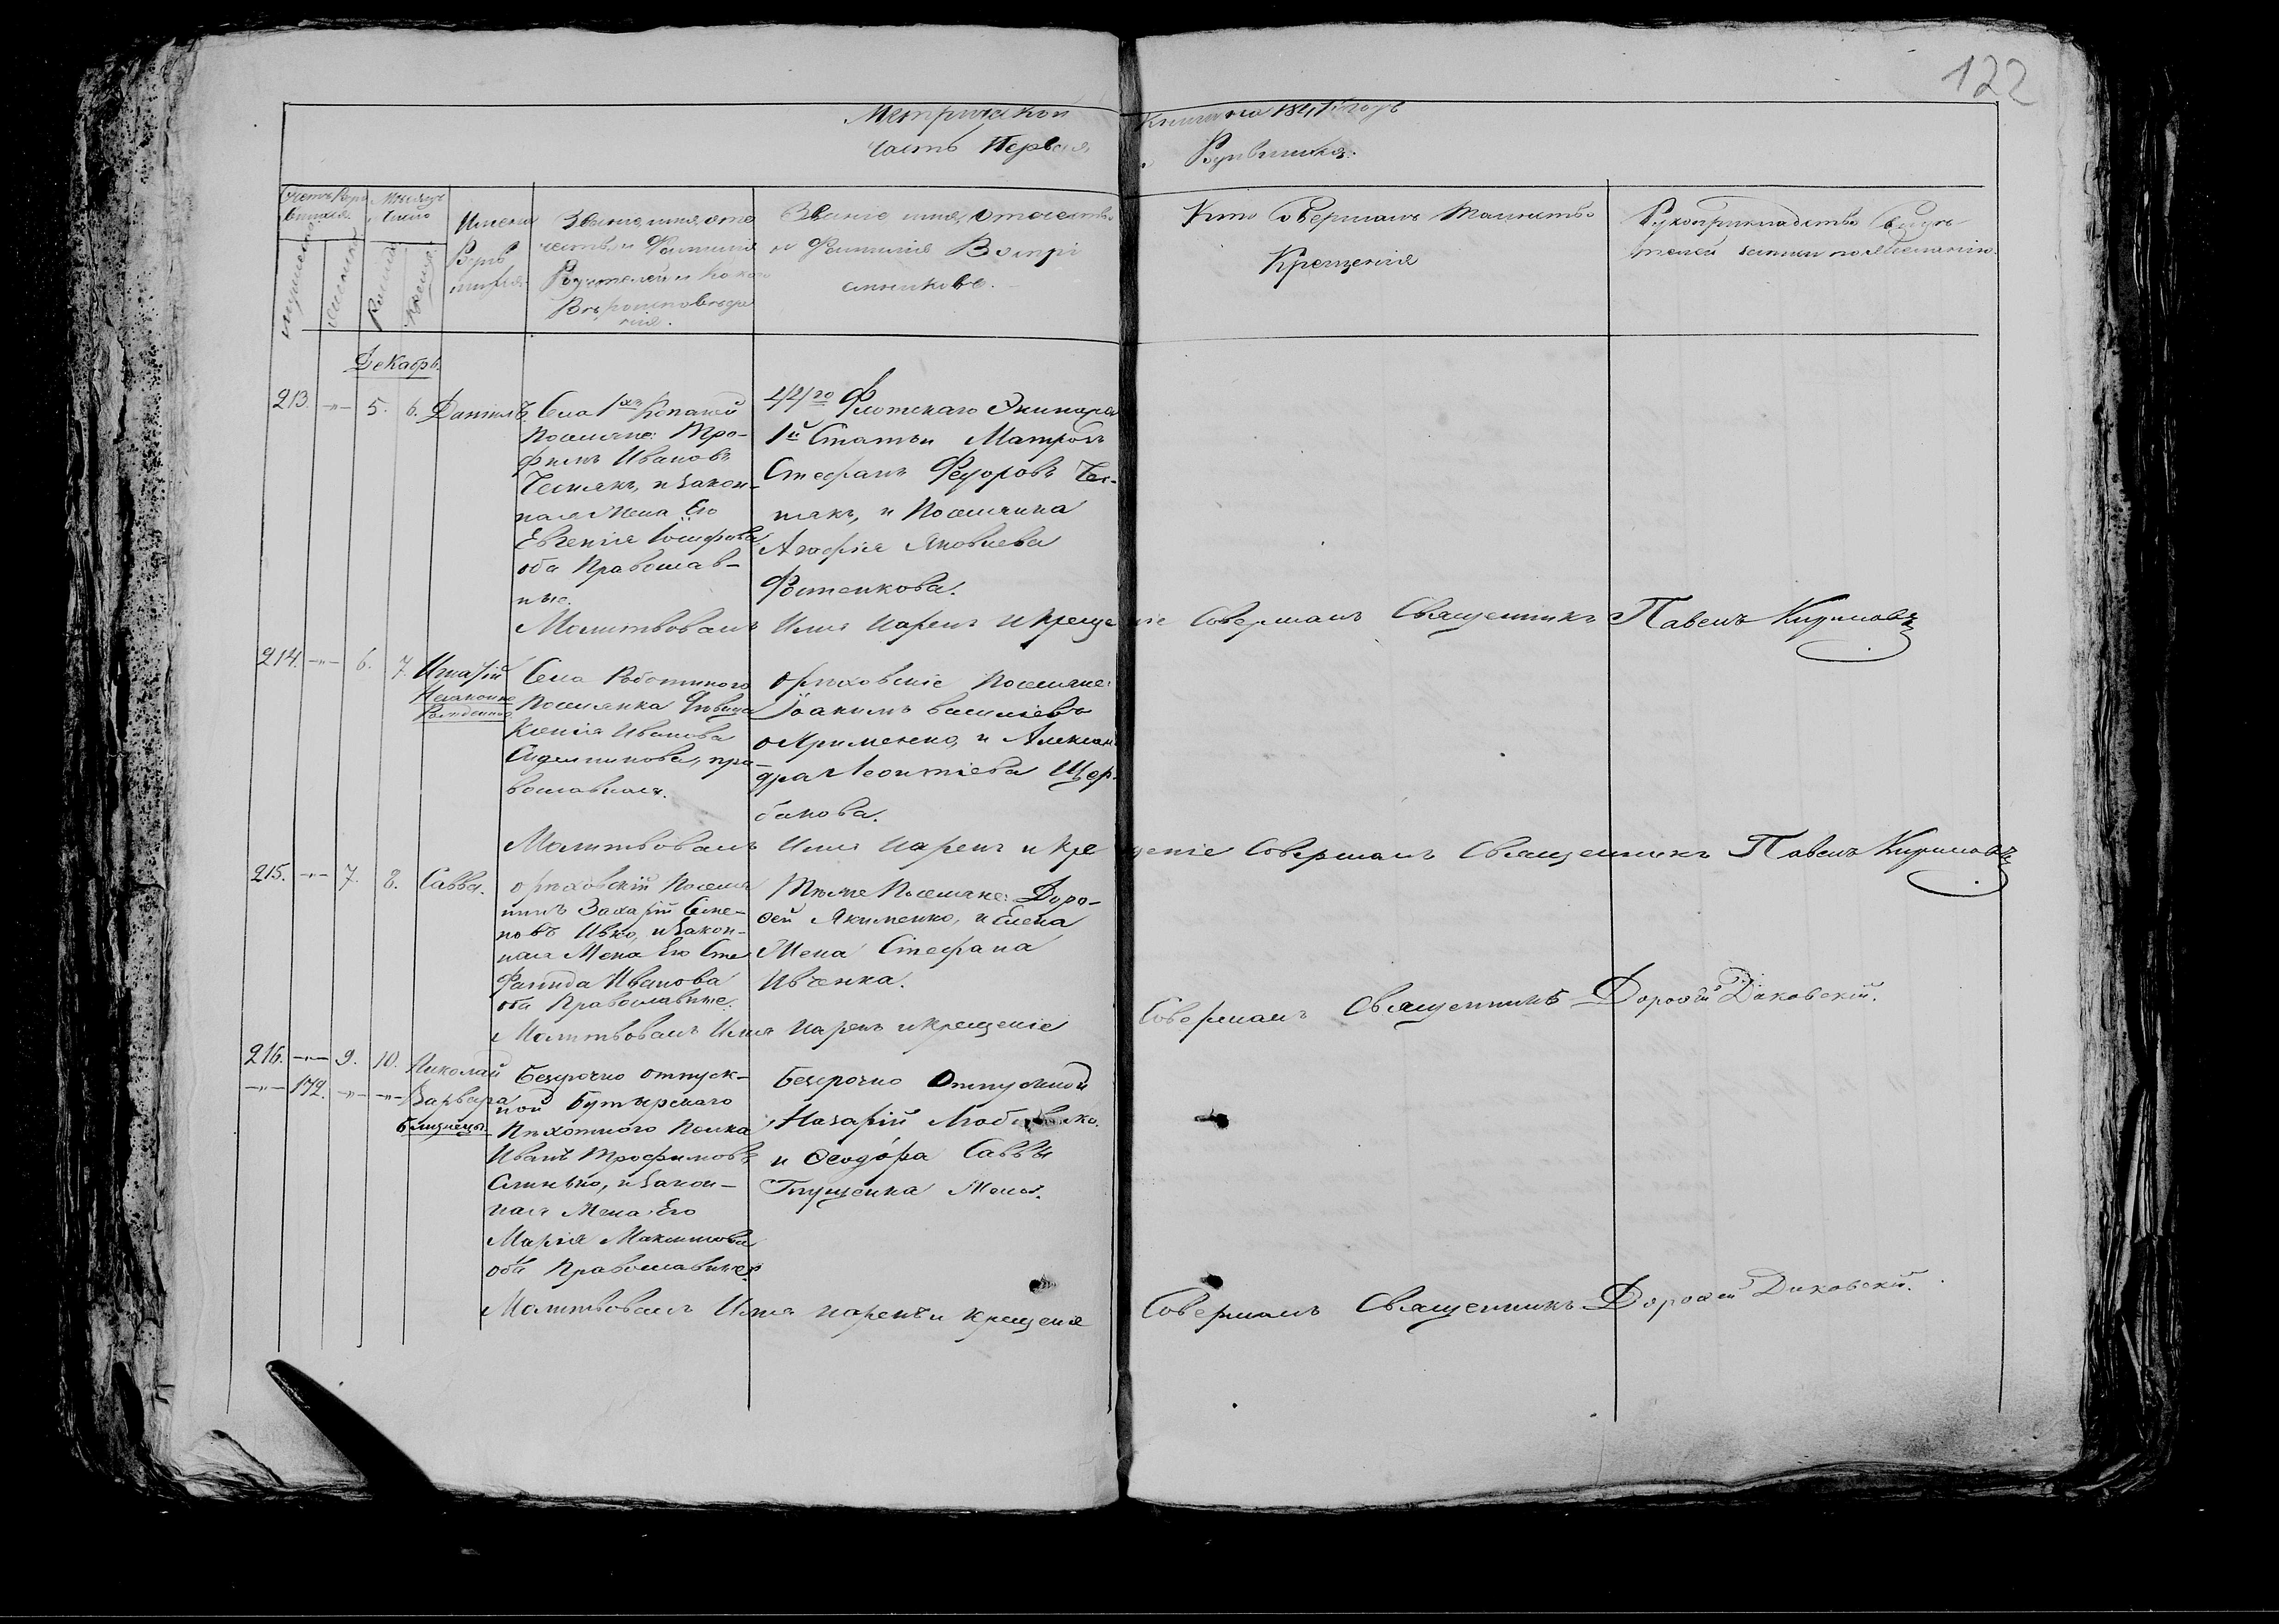 122
Метрической Книги на 1841 годъ
Часть Первая, о Родившихся.
Счетъ Роди
вшихся.
Мѣсяцъ
Число
мужеска
женска
Рожден
Крещ.
Имена
Родив
шихся.
Званіе, имя, оте
чество, и Фамилія
Родителей и какого
Вѣроисповѣда
нія.
Званіе имя, отечество
и Фамилія Воспрі
емниковъ.
Кто Совершалъ Таинство
Крещенія
Рукоприкладство Свидѣ
телей записи по желанію.
Декабрь.
213. —"— 5. 6. Даніилъ.
Села 1хъ Копаней
Поселяне: Тро-
фимъ Ивановъ
Чеснякъ, и закон-
ная Жена Его
Евгенія Іосифова
оба Православ-
ные.
44го Флотскаго Экипажа
1й Статьи Матрозъ
Стефанъ Федоровъ Чес-
някъ, и Поселянка
Агафія Яковлева
Фотенкова.
Молитвовалъ Имя Нарекъ и Крещеніе Совершалъ Священникъ Павелъ Кириловъ
214. —"— 6. 7. Игнатій
Незаконно
Рожденной
Села Роботиного
Поселянка Дѣвица
Ксенія Иванова
пра-
вославная.
Орѣховскіе Поселяне:
Іоакимъ Василіевъ
Охрименко, и Алексан
дра Леонтіева Щер-
бакова.
Молитвовалъ Имя Нарекъ и Крещеніе Совершалъ Священникъ Павелъ Кириловъ
215. —"— 7. 8. Савва.
Орѣховскій Поселя
нинъ Захарій Семе-
новъ Ивко, и закон-
ная Жена Его Сте
фанида Иванова
оба Православные.
Тѣже Поселяне: Доро-
фей Якименко, и Елена
Жена Стефана
Ивченка.
Молитвовалъ Имя Нарекъ и Крещеніе Совершалъ Священникъ Дорофей Диковскій.
216. —"— 9. 10. Николай
—"— 172. —"— —"— Варвара
близнецы.
Безсрочно отпуск-
ной Бутырскаго
Пѣхотного Полка
Иванъ Трофимовъ
и закон-
ная Жена Его
Марія Максимова
оба Православные.
Безсрочно Отпускной
Назарій
и Ѳеодора Саввы
Глущенка Жена.
Молитвовалъ Имя нарекъ и крещеніе Совершалъ Священникъ Дорофей Диковскій.